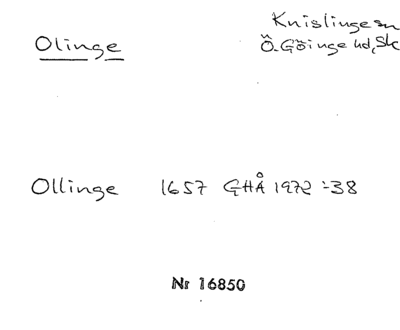 Knislinge sn
Olinge
Ö. Göinge hd, Sk
Ollinge 1657 GHÅ 1972:38
Nr 16850